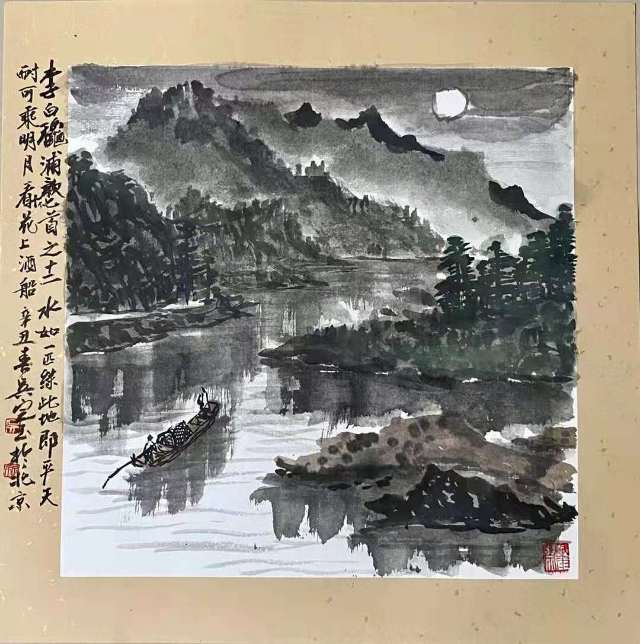 李白龝浦歌首之十二 水如一匹练此地即平天
耐可乘明月看花上酒船 辛丑 於北京